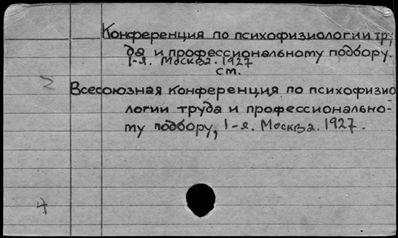 Конференция по психофизиологии тру,
да и профессиональному подбору.
1-я. Москва. 1927
см.
2
Всесоюзная конференция по психофизио
логии труда и профессионально-
му подбору, 1-я. Москва. 1927.
4